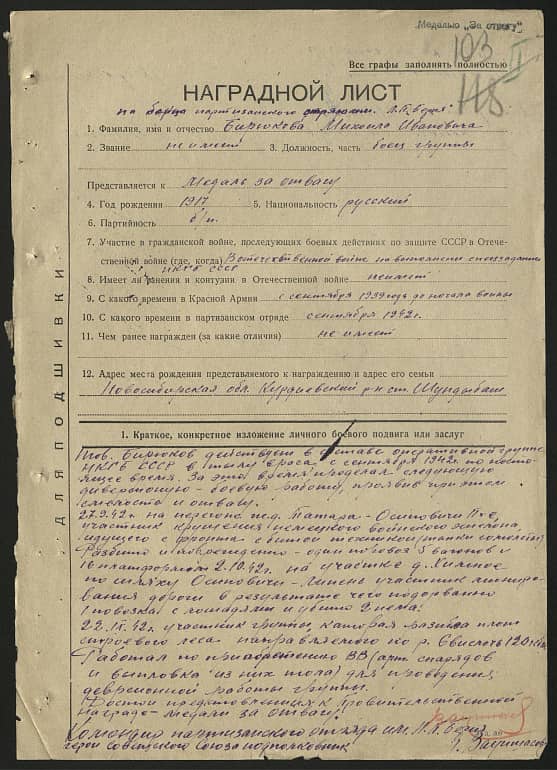 Медалью „За отвагу"
103
Все графы заполнять полностью
118
НАГРАДНОЙ ЛИСТ
на бойца партизанского отряда им. Л.П. Берия
1. Фамилия, имя и отчество Бирюкова Михаила Ивановича
2. Звание не имеет 3. Должность, часть боец группы
Представляется к Медаль за отвагу
4. Год рождения 1917 5. Национальность русский
6. Партийность б/п.
7. Участие в гражданской войне, последующих боевых действиях по защите СССР в Отече-
ственной войне (где, когда) В отечественной войне на выполнении спецзадания
НКГБ СССР
8. Имеет ли ранения и контузии в Отечественной войне не имеет
9. С какого времени в Красной Армии с сентября 1939 года до начала войны
10. С какого времени в партизанском отряде сентября 1942 г.
11. Чем ранее награжден (за какие отличия) не имеет
12. Адрес места рождения представляемого к награждению и адрес его семьи
Новосибирская обл. р-н ст.
ДЛЯ ПОДШИВКИ
1. Краткое, конкретное изложение личного боевого подвига или заслуг
Тов. Бирюков действует в составе оперативной группы
НКГБ СССР в тылу врага с сентября 1942 г. по насто-
ящее время. За это время проделал следующую
диверсионно-боевую работу, проявив при этом
смелость и отвагу.
27.9.42 г. на перегоне ж.д. Татарка-Осиповичи II-е,
участник крушения немецкого воинского эшелона,
идущего с фронта с битой техникой (танки самолеты)
Разбито и повреждено - один паровоз 5 вагонов и
16 платформ. 2.10.42 г. на участке д. Липное
по шляху Осиповичи-Липень участник миниро-
вания дороги в результате чего подорвано
1 повозка с лошадями и убито 2 немца.
22. 42 г. участник группы, которая разбила плот
строевого леса направляемого по р. Свислочь 120
Работал по приобретению ВВ (арт снарядов
и выплавка из них тола) для проведения
диверсионной работы группы.
Достоин представления к правительственной
награде - медали за отвагу.
Командир партизанского отряда им. Л.П. Берия
герой Советского Союза подполковник